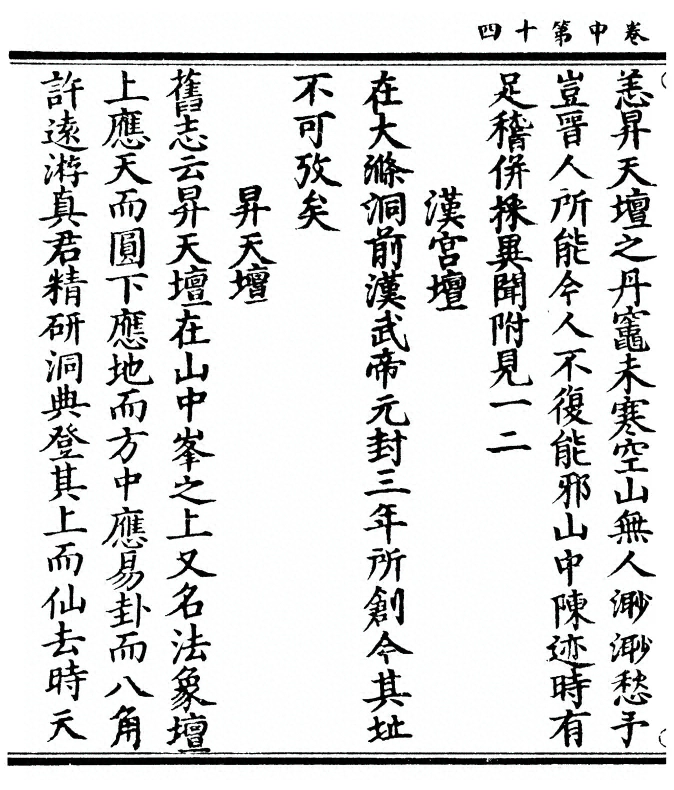 卷中第十四
恙昇天壇之丹竈未寒空山無人渺渺愁予
豈晉人所能今人不復能邪山中陳迹時有
足稽併採異聞附見一二
漢宮壇
在大滌洞前漢武帝元封三年所創今其址
不可攷矣
昇天壇
舊志云昇天壇在山中峯之上又名法象壇
上應天而圓下應地而方中應易卦而八角
許遠游真君精研洞典登其上而仙去時天